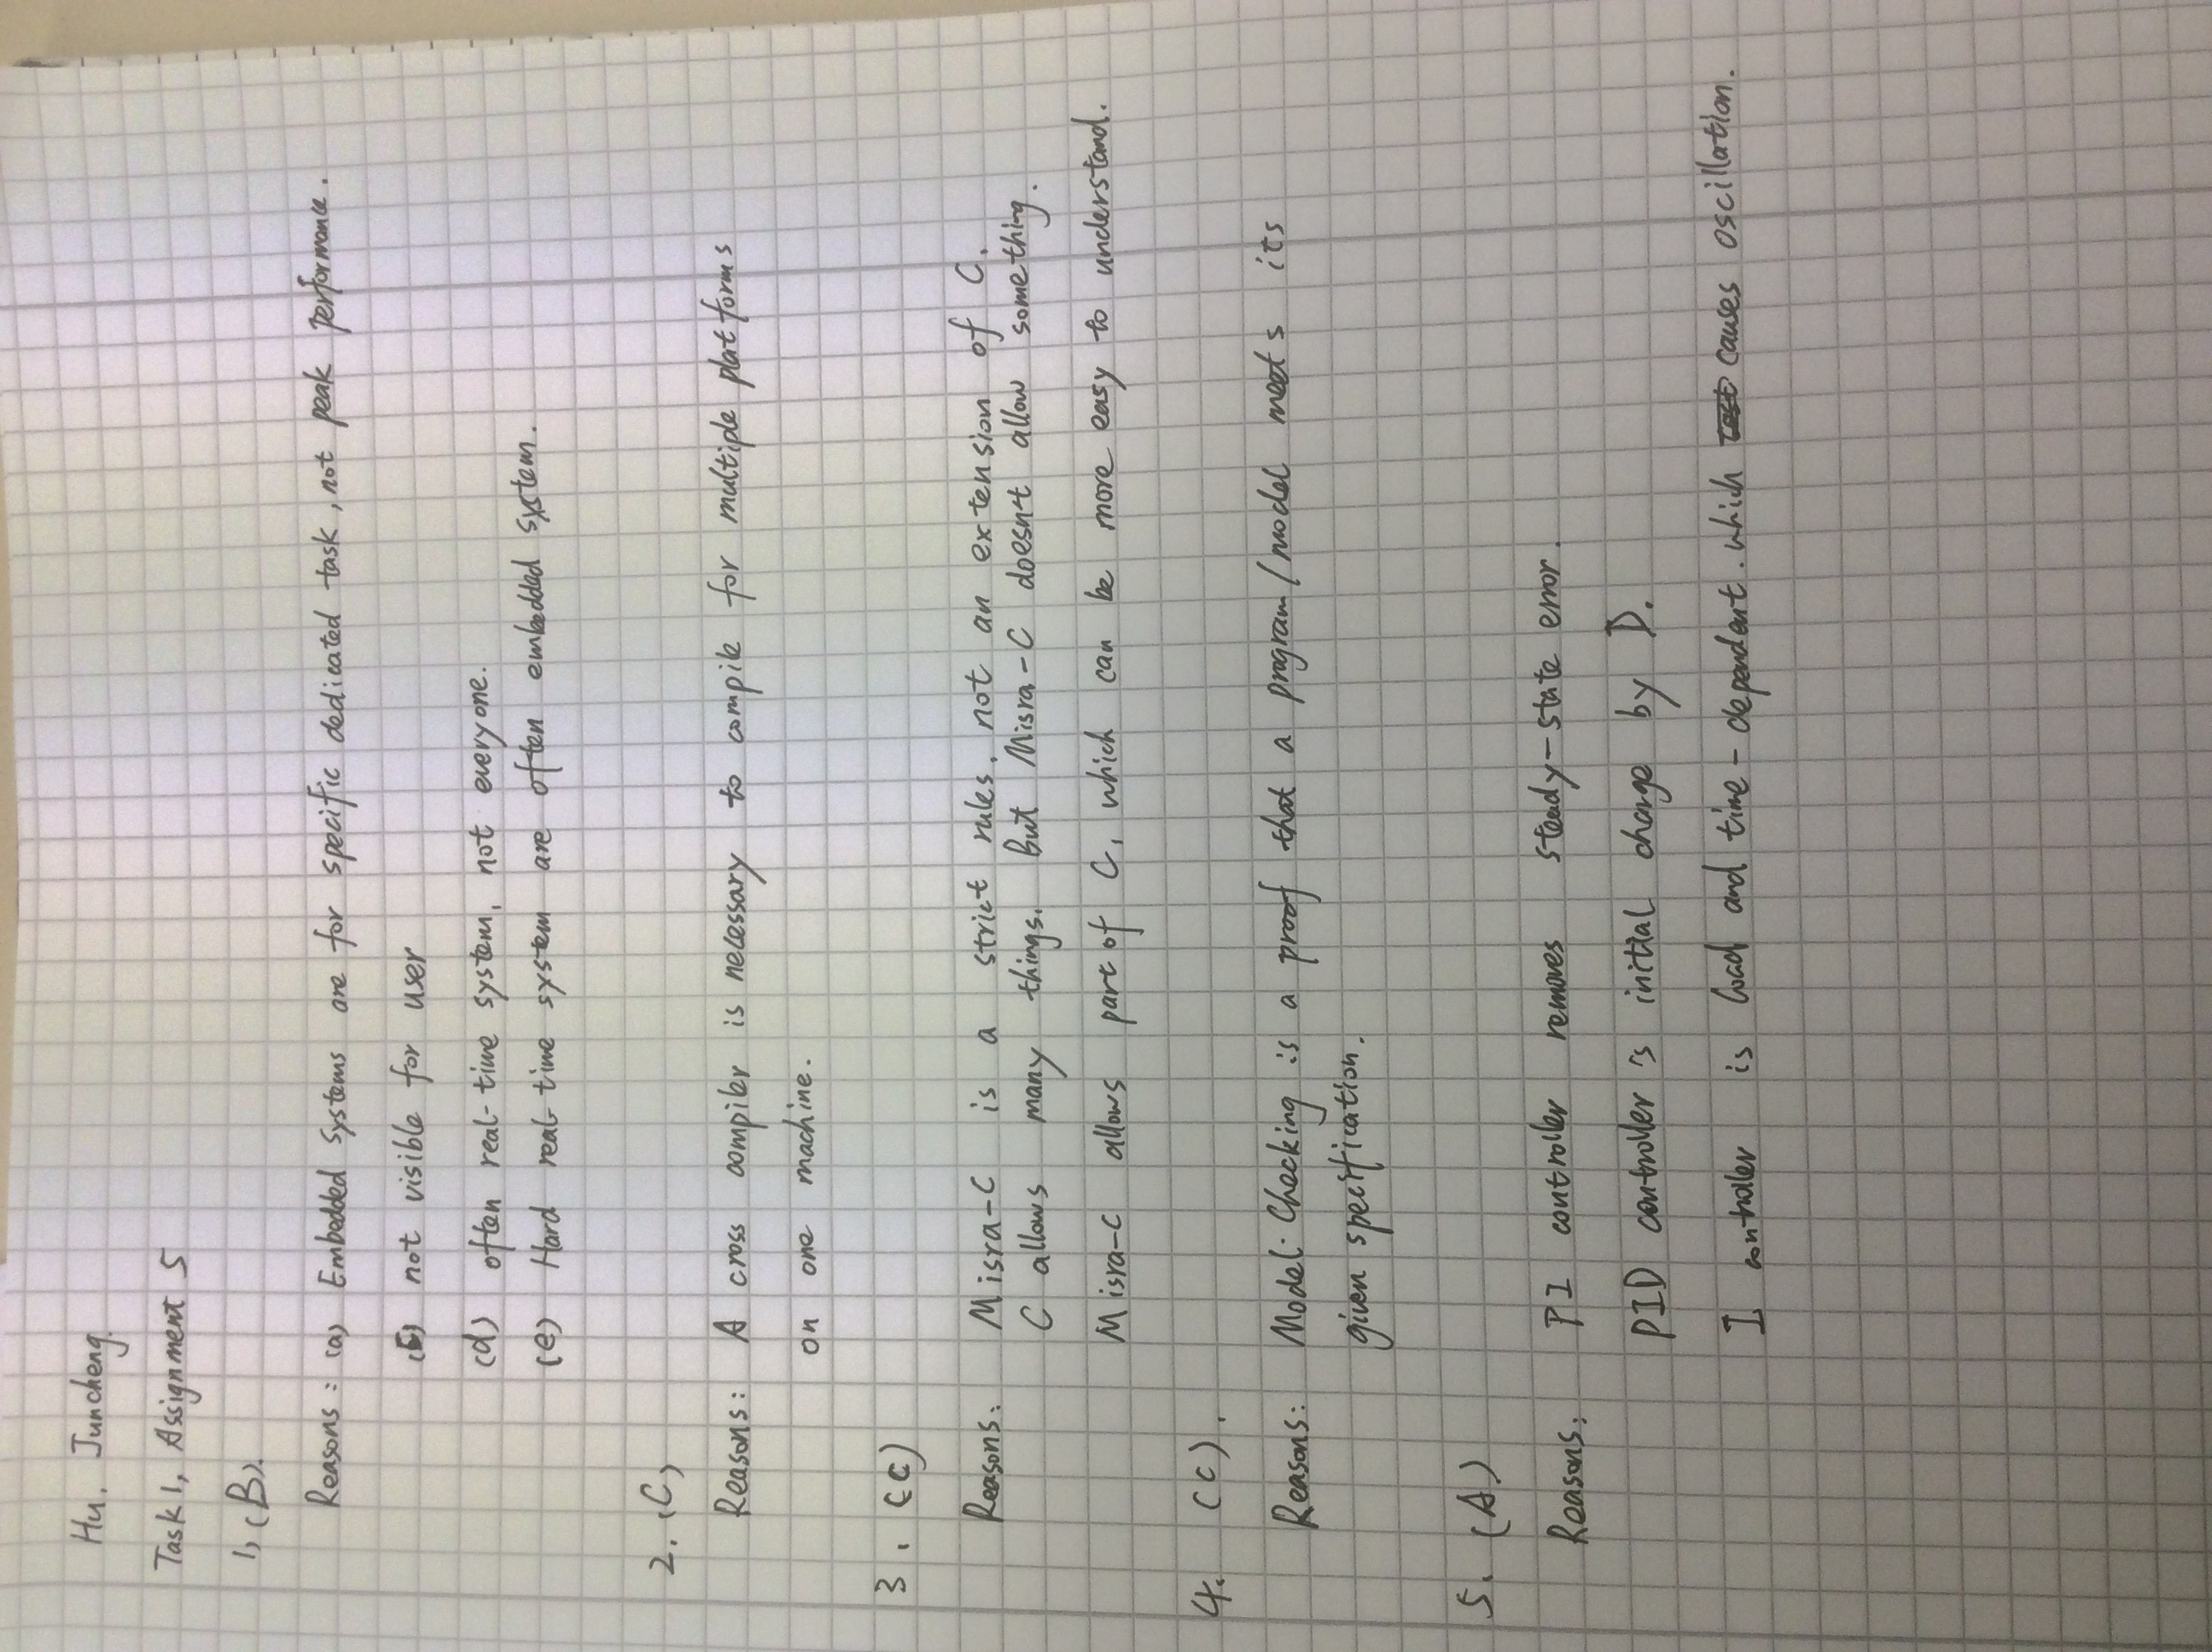 Hu, Juncheng.
Task 1, Assignment 5
1, (B).
Reasons: (a) Embedded systems are for specific dedicated task, not peak performance.
(c) not visible for user
(d) often real-time system, not everyone.
(e) Hard real-time system are often embedded system.
2. (C)
Reasons: A cross compiler is necessary to compile for multiple platforms
on one machine.
3. (C)
Reasons: Misra-C is a strict rules, not an extension of C.
C allows many things. But Misra-C doesnt allow something.
Misra-C allows part of C, which can be more easy to understand.
4. (C).
Reasons: Model-Checking is a proof that a program/model meets its
given specification.
5. (A)
Reasons: PI controller removes steady-state error.
PID controller is initial change by D.
I controller is load and time-dependent. which causes oscillation.